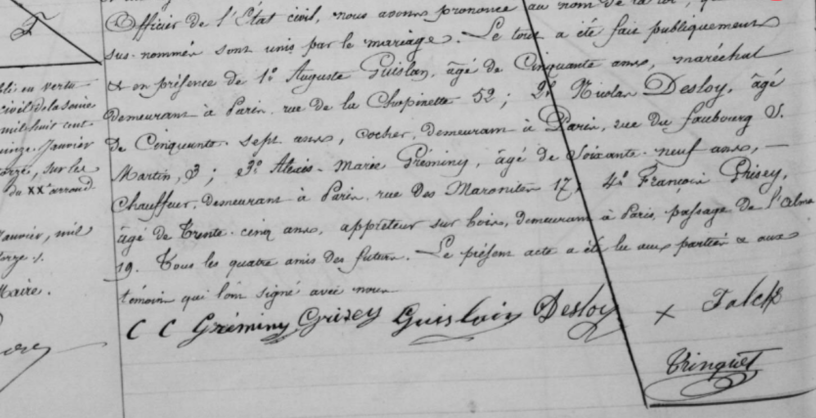 F
Officier de l'État civil, nous avons prononcé au nom de la loi, que
sus-nommés sont unis par le mariage. Le tout a été fait publiquement
& en présence de 1° Auguste Guislan, âgé de Cinquante ans, maréchal
demeurant à Paris rue de la Chopinette 52; 2° Nicolas Desloy, âgé
de Cinquante sept ans, cocher, demeurant à Paris, rue du faubourg S.
Martin, 3; 3° Alexis-Marie Gréminy, âgé de Soixante-neuf ans, —
Chauffeur, demeurant à Paris rue des Maronites 17, 4° François Grisey,
âgé de Trente-cinq ans, apprêteur sur bois, demeurant à Paris, passage de l'Alma
19. Tous les quatre amis des futurs. Le présent acte a été lu aux parties & aux
témoins qui l'ont signé avec nous.
C C Gréminy Grisey Guislain Desloy x
Trinquet
en vertu
mil huit cent
Janvier
sur les
du XXe arrond.
Janvier, mil
Maire.